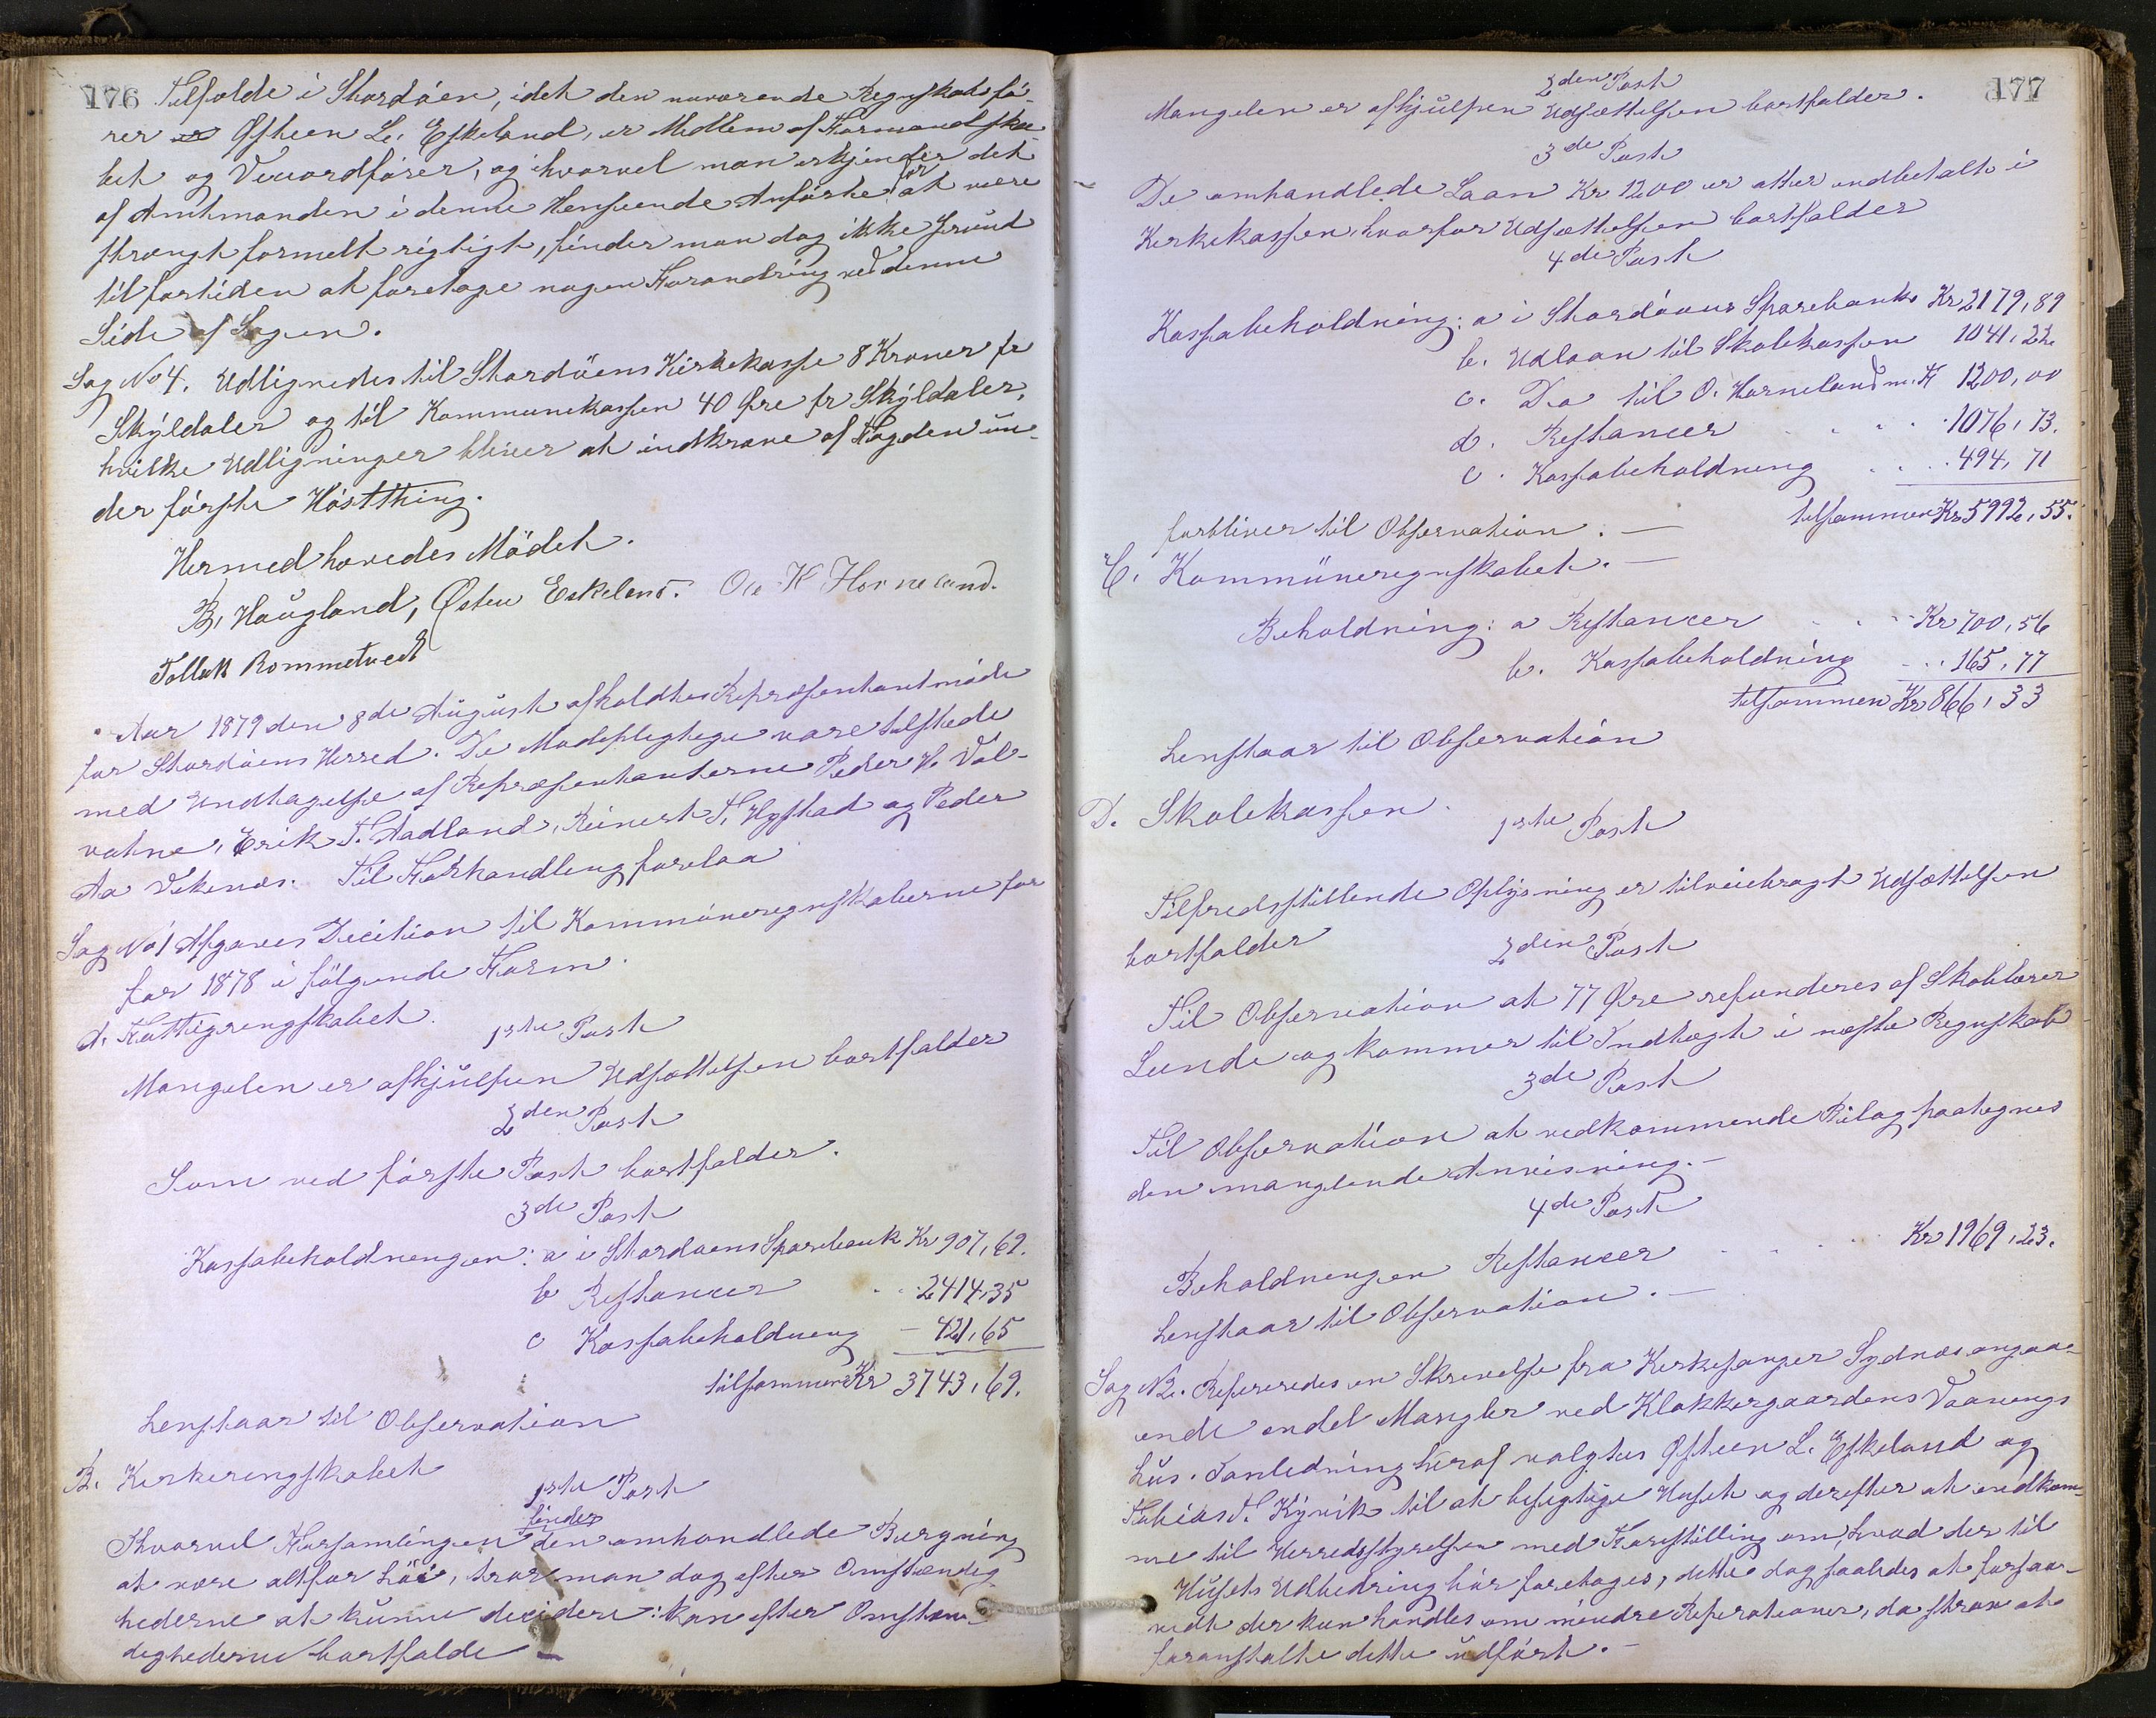 176
Tilfælde i Stordøen, idet den nuværende Regnskabsfø-
rer Østeen L. Eskeland, er Medlem af Formandska-
bet og Viceordfører, og ihvorvel man erkjender det
af Amtmanden i denne Henseende Anførte for at være
strængt formelt rigtigt, finder man dog ikke Grund
til fortiden at foretage nogen Forandring ved denne
Side af Sagen.
Sag No 4. Udlignedes til Stordöens Kirkekasse 8 Kroner pr
Skÿldaler og til Kommunekassen 40 Øre pr Skÿldaler,
hvilke Udligninger bliver at indkræve af Fogden un-
der første Høstthing.
Hermed hævedes Mödet.
B. Haugland, Østen Eskeland. Ole K Horneland.
Tollak Rommetvedt
Aar 1879 den 8de August afholdtes Repræsentantmøde
for Stordøens Herred. De Mødepligtige vare tilstede
med Undtagelse af Repræsentanterne Peder H. Val-
vatne, Erik T. Aadland, Reinert T. Hystad og Peder
Aa Vikenæs. Til Forhandling forelaa
Sag No 1 Afgaves Decition til Kommuneregnskaberne for
for 1878 i følgende Form.
A. Fattigrengskabet.
1ste Post
Mangelen er afhjulpen Udsættelsen bortfalder
2den Post
Som ved første Post bortfalder.
3de Post
Kassabeholdningen: a i Stordøens Sparebank Kr 907,69.
b Restancer . . 2414,35
c Kassabeholdning – 421,65
tilsammen Kr 3743,69.
henstaar til Observation
B. Kirkerengskabet
1ste Post
finder
Ihvorvel Forsamlingen den omhandlede Beregning
at være altfor høi, tror man dog efter Omstændig-
hederne at kunne decidere: kan efter Omstæn-
dighederne bortfalde –
177
2den Post
Mangelen er afhjulpen Udsættelsen bortfalder.
3de Post
De omhandlede Laan Kr 1200 er atter indbetalt i
Kirkekassen, hvorfor Udsættelsen bortfalder
4de Post
Kassabeholdning: a i Stordøens Sparebank Kr 2179,89
b. Udlaan til Skolekassen 1041,22
c. Do til O. Horneland m. F 1200,00
d. Restancer . . . . 1076,73.
e. Kassabeholdning . . . 494,71
tilsammen Kr 5992,55.
forbliver til Observation. –
C. Kommüneregnskabet. –
Beholdning: a Restancer . . . Kr 700,56
b. Kassabeholdning . . . 165,77
tilsammen Kr 866,33
henstaar til Observation
D. Skolekassen.
1ste Post
Tilfredsstillende Oplÿsning er tilveiebragt Udsættelsen
bortfalder
2den Post
Til Observation at 77 Øre refunderes af Skolelærer
Lunde og kommer til Indtægt i næste Regnskab
3de Post
Til Observation at vedkommende Bilag paategnes
den manglende Anvisning. –
4de Post
Beholdningen Restancer . . . . Kr 1969,23.
henstaar til Observation. –
Sag N 2. Refereredes en Skrivelse fra Kirkesanger Sydnæs angaa-
ende endel Mangler ved Klokkergaardens Vaanings
hus. Ianledning heraf valgtes Østeen L. Eskeland og
Tobias T. Kyvik til at besigtige Huset og derefter at indkom-
me til Herredsstyrelsen med Forestilling om, hvad der til
Husets Udbedring bør foretages, dette dog saaledes at forsaa-
vidt der kun handles om mindre Reperationer, da strax at
foranstalte dette udført. –